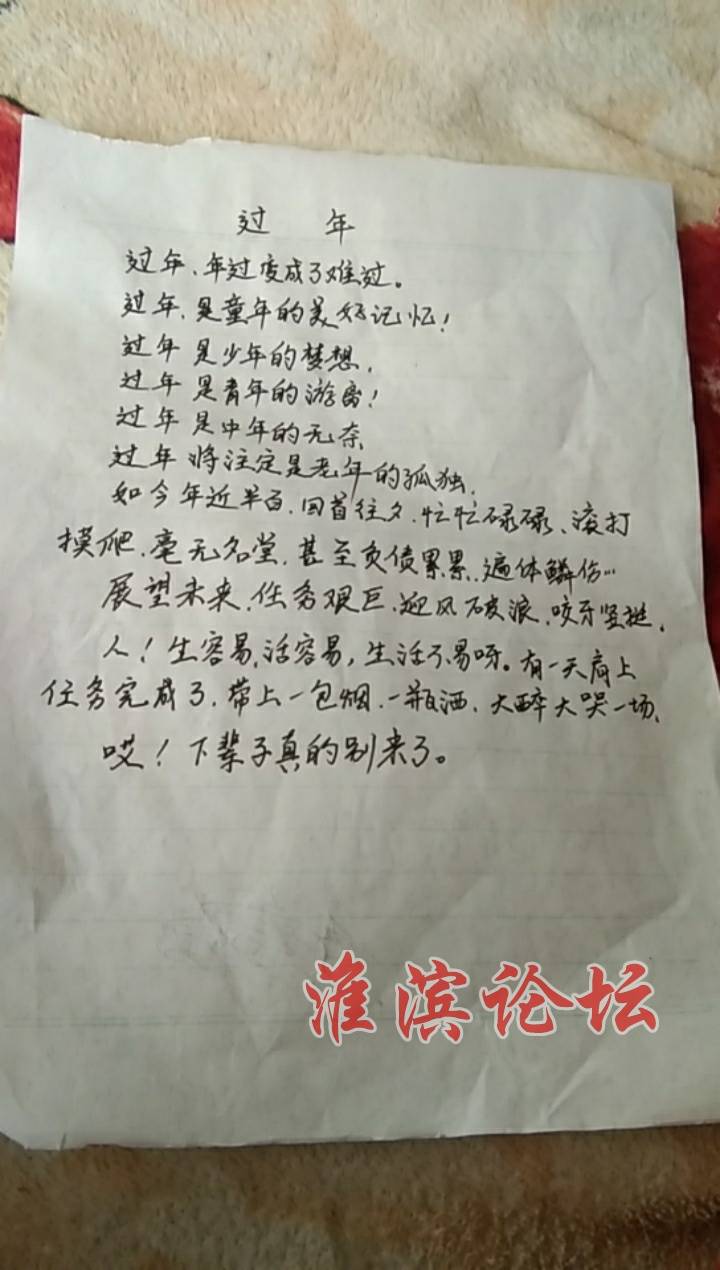 过 年
过年、年过变成了难过。
过年,是童年的美好记忆!
过年 是少年的梦想,
过年 是青年的游离!
过年 是中年的无奈,
过年 将注定是老年的孤独,
如今年近半百,回首往夕,忙忙碌碌、滚打
摸爬,毫无名堂,甚至负债累累,遍体鳞伤…
展望未来,任务艰巨,迎风破浪,咬牙坚挺,
人!生容易,活容易,生活不易呀。有一天肩上
任务完成了,带上一包烟,一瓶酒,大醉大哭一场,
哎!下辈子真的别来了。
淮滨论坛